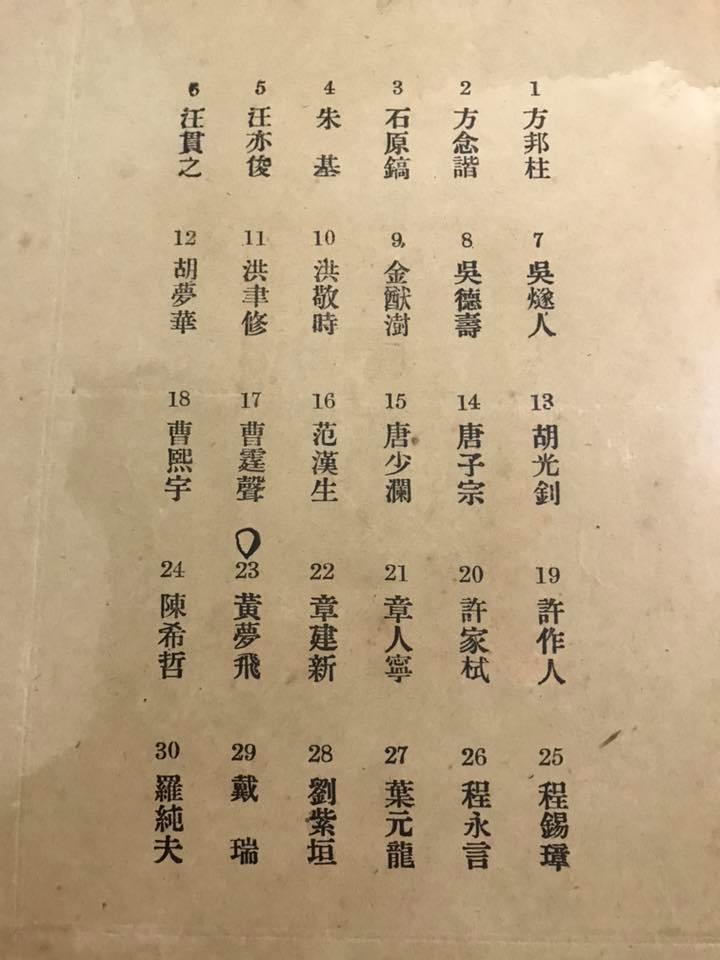 1 方邦柱
2 方念諧
3 石原鎬
4 朱 基
5 汪亦俊
6 汪貫之
7 吳燧人
8 吳德壽
9 金猷澍
10 洪敬時
11 洪聿修
12 胡夢華
13 胡光釗
14 唐子宗
15 唐少瀾
16 范漢生
17 曹霆聲
18 曹熙宇
19 許作人
20 許家栻
21 章人寧
22 章建新
23 黃夢飛
24 陳希哲
25 程錫璋
26 程永言
27 葉元龍
28 劉紫垣
29 戴 瑞
30 羅純夫